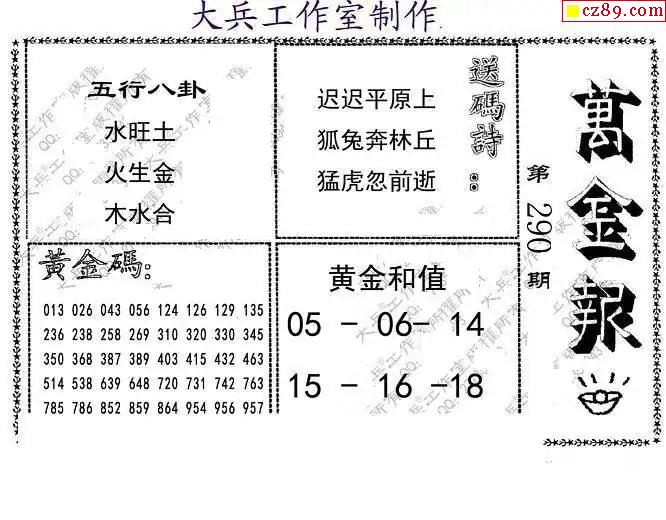 大兵工作室制作
cz89.com
五行八卦
水旺土
火生金
木水合
送碼詩:
迟迟平原上
狐兔奔林丘
猛虎忽前逝
萬金报
第290期
黄金碼:
013 026 043 056 124 126 129 135
236 238 258 269 310 320 330 345
350 368 387 389 403 415 432 463
514 538 639 648 720 731 742 763
785 786 852 859 864 954 956 957
黄金和值
05 - 06- 14
15 - 16 -18